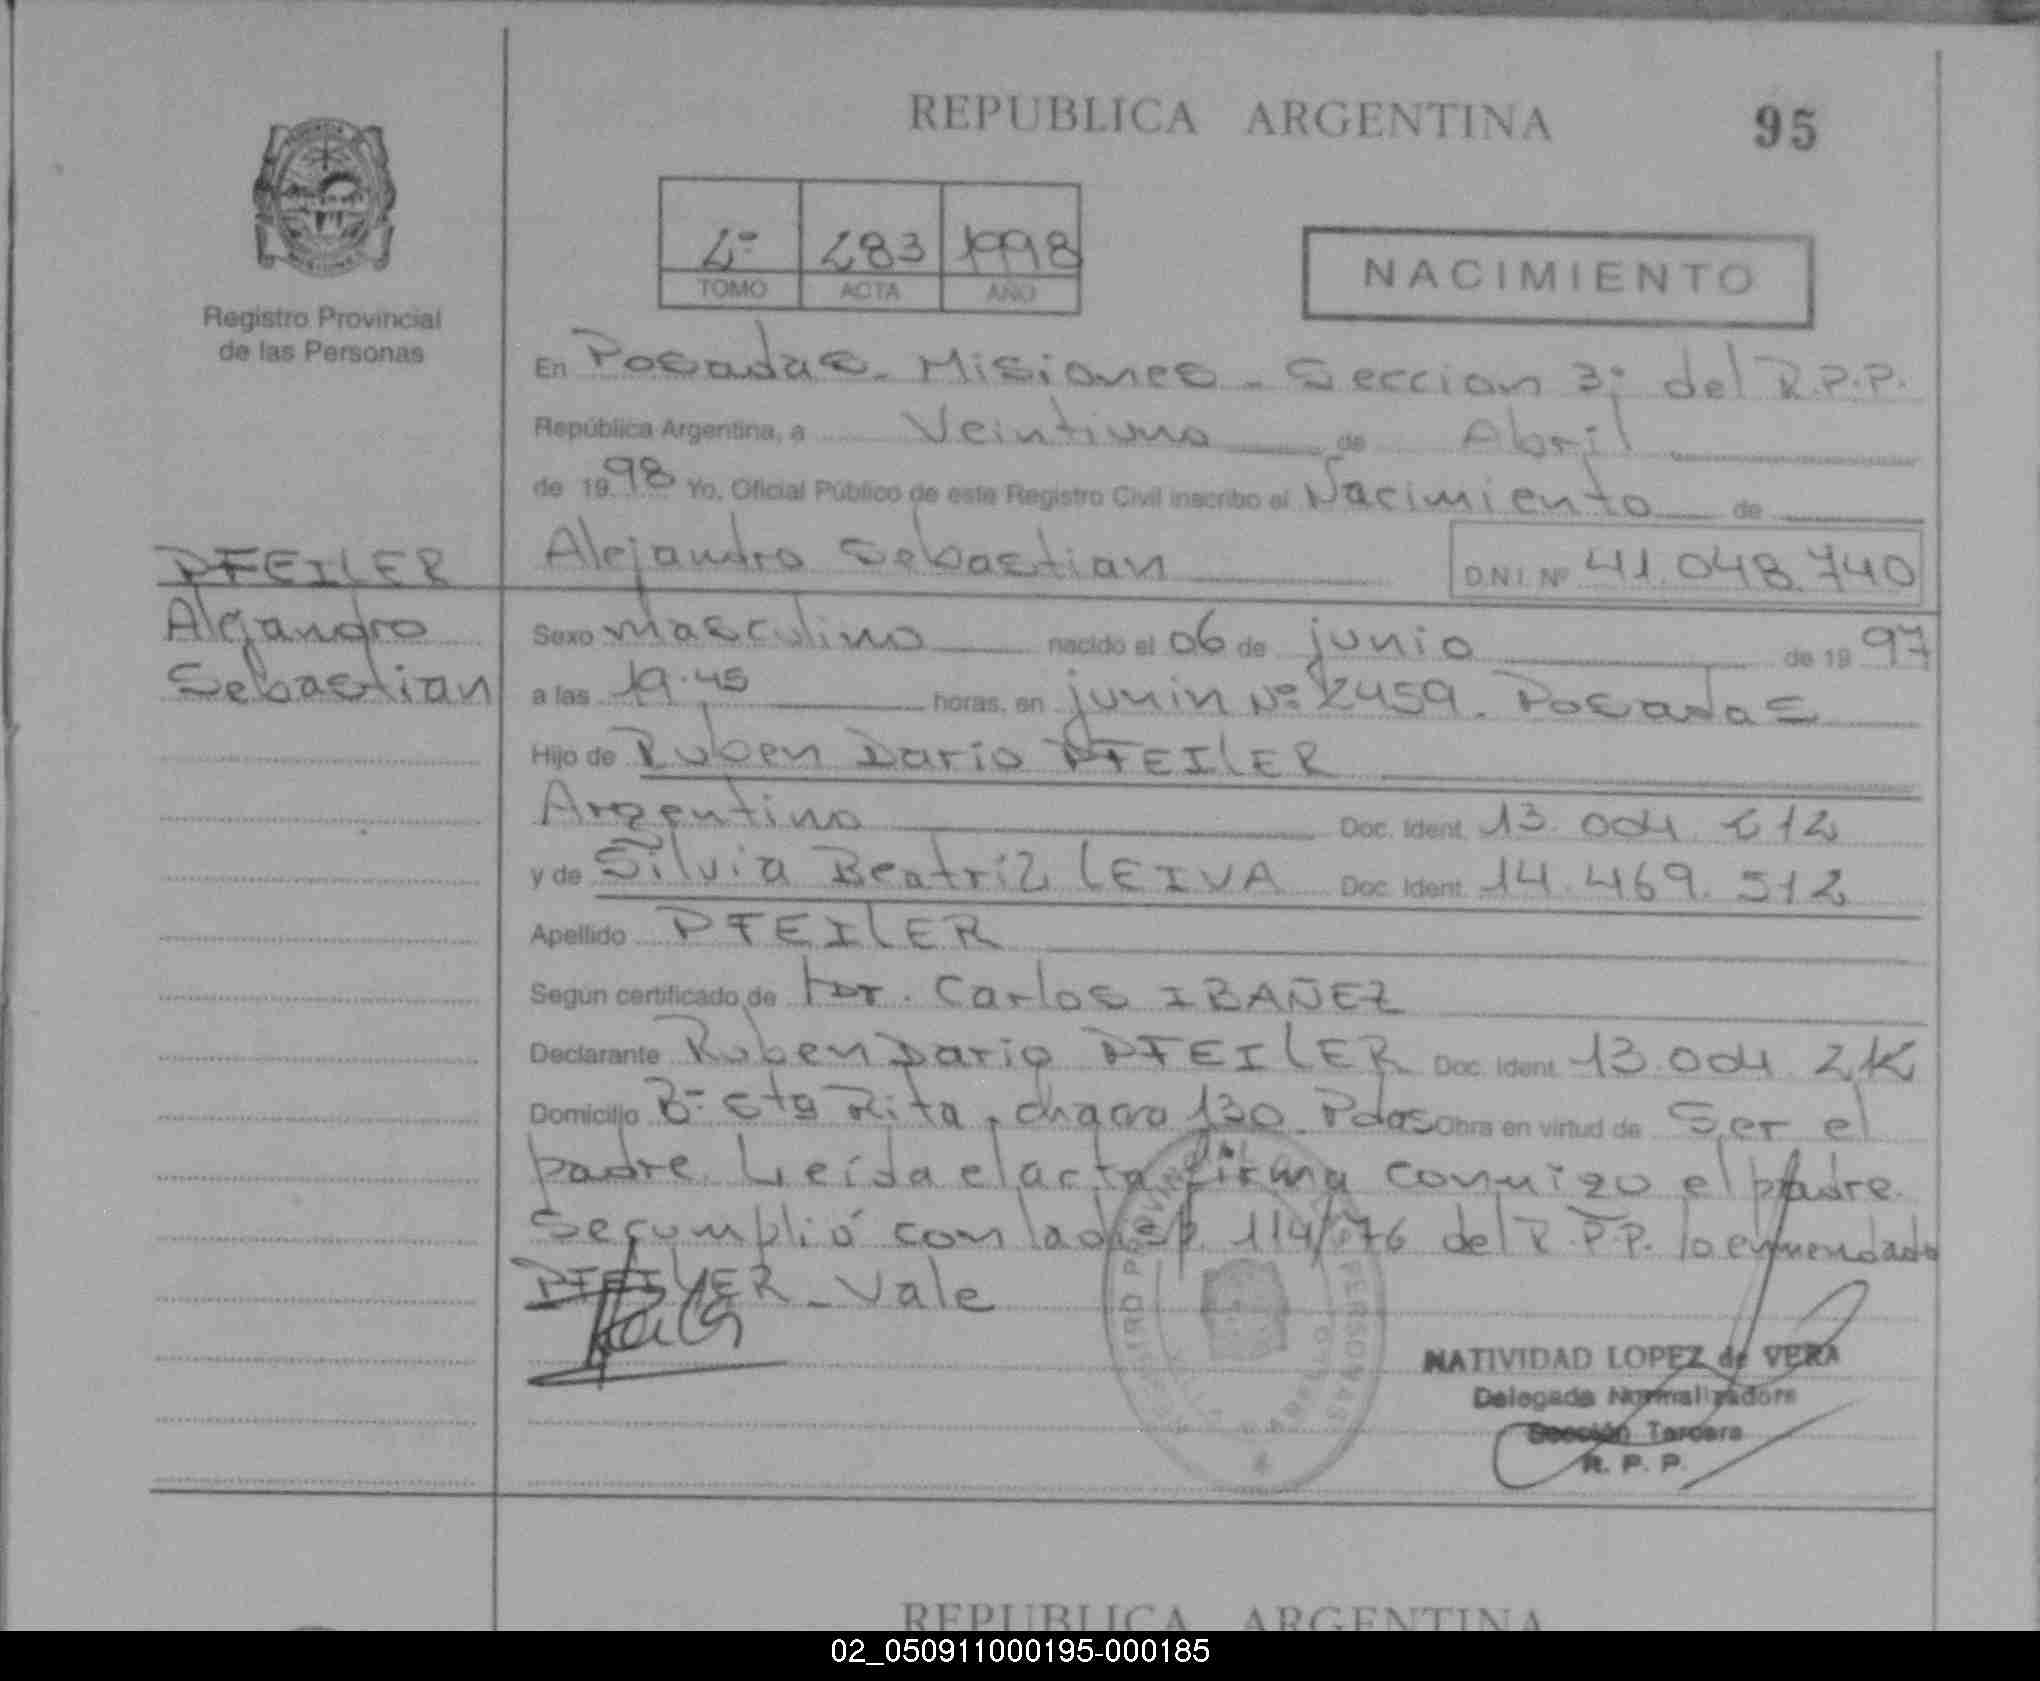 REPUBLICA ARGENTINA
95
283 1998
TOMO ACTA AÑO
NACIMIENTO
Registro Provincial
de las Personas
En Posadas - Misiones - Seccion 3ª del R.P.P.
República Argentina, a Veintiuno de Abril
de 1998 Yo, Oficial Público de este Registro Civil inscribo el Nacimiento de
PFEILER
Alejandro
Sebastian
Alejandro Sebastian D.N.I. Nº 41.048.740
Sexo masculino nacido el 06 de junio de 1997
a las 19.45 horas, en junin Nº 2459. Posadas
Hijo de Ruben Dario PFEILER
Argentino Doc. Ident. 13.004.212
y de Silvia Beatriz LEIVA Doc. Ident. 14.469.512
Apellido PFEILER
Según certificado de Carlos IBAÑEZ
Declarante Ruben Dario PFEILER Doc. Ident. 13.004.
Domicilio Bº Sta Rita, chacra 130. Pdas Obra en virtud de Ser el
padre. Leida el acta firma conmigo el padre.
Se cumplió con la disp. 114/76 del R.P.P. lo enmendado
PFEILER - Vale
REGISTRO PROVINCIAL PERSONAS
NATIVIDAD LOPEZ de VERA
Delegada Normalizadora
Sección Tercera
R. P. P.
REPUBLICA ARGENTINA
02_050911000195-000185